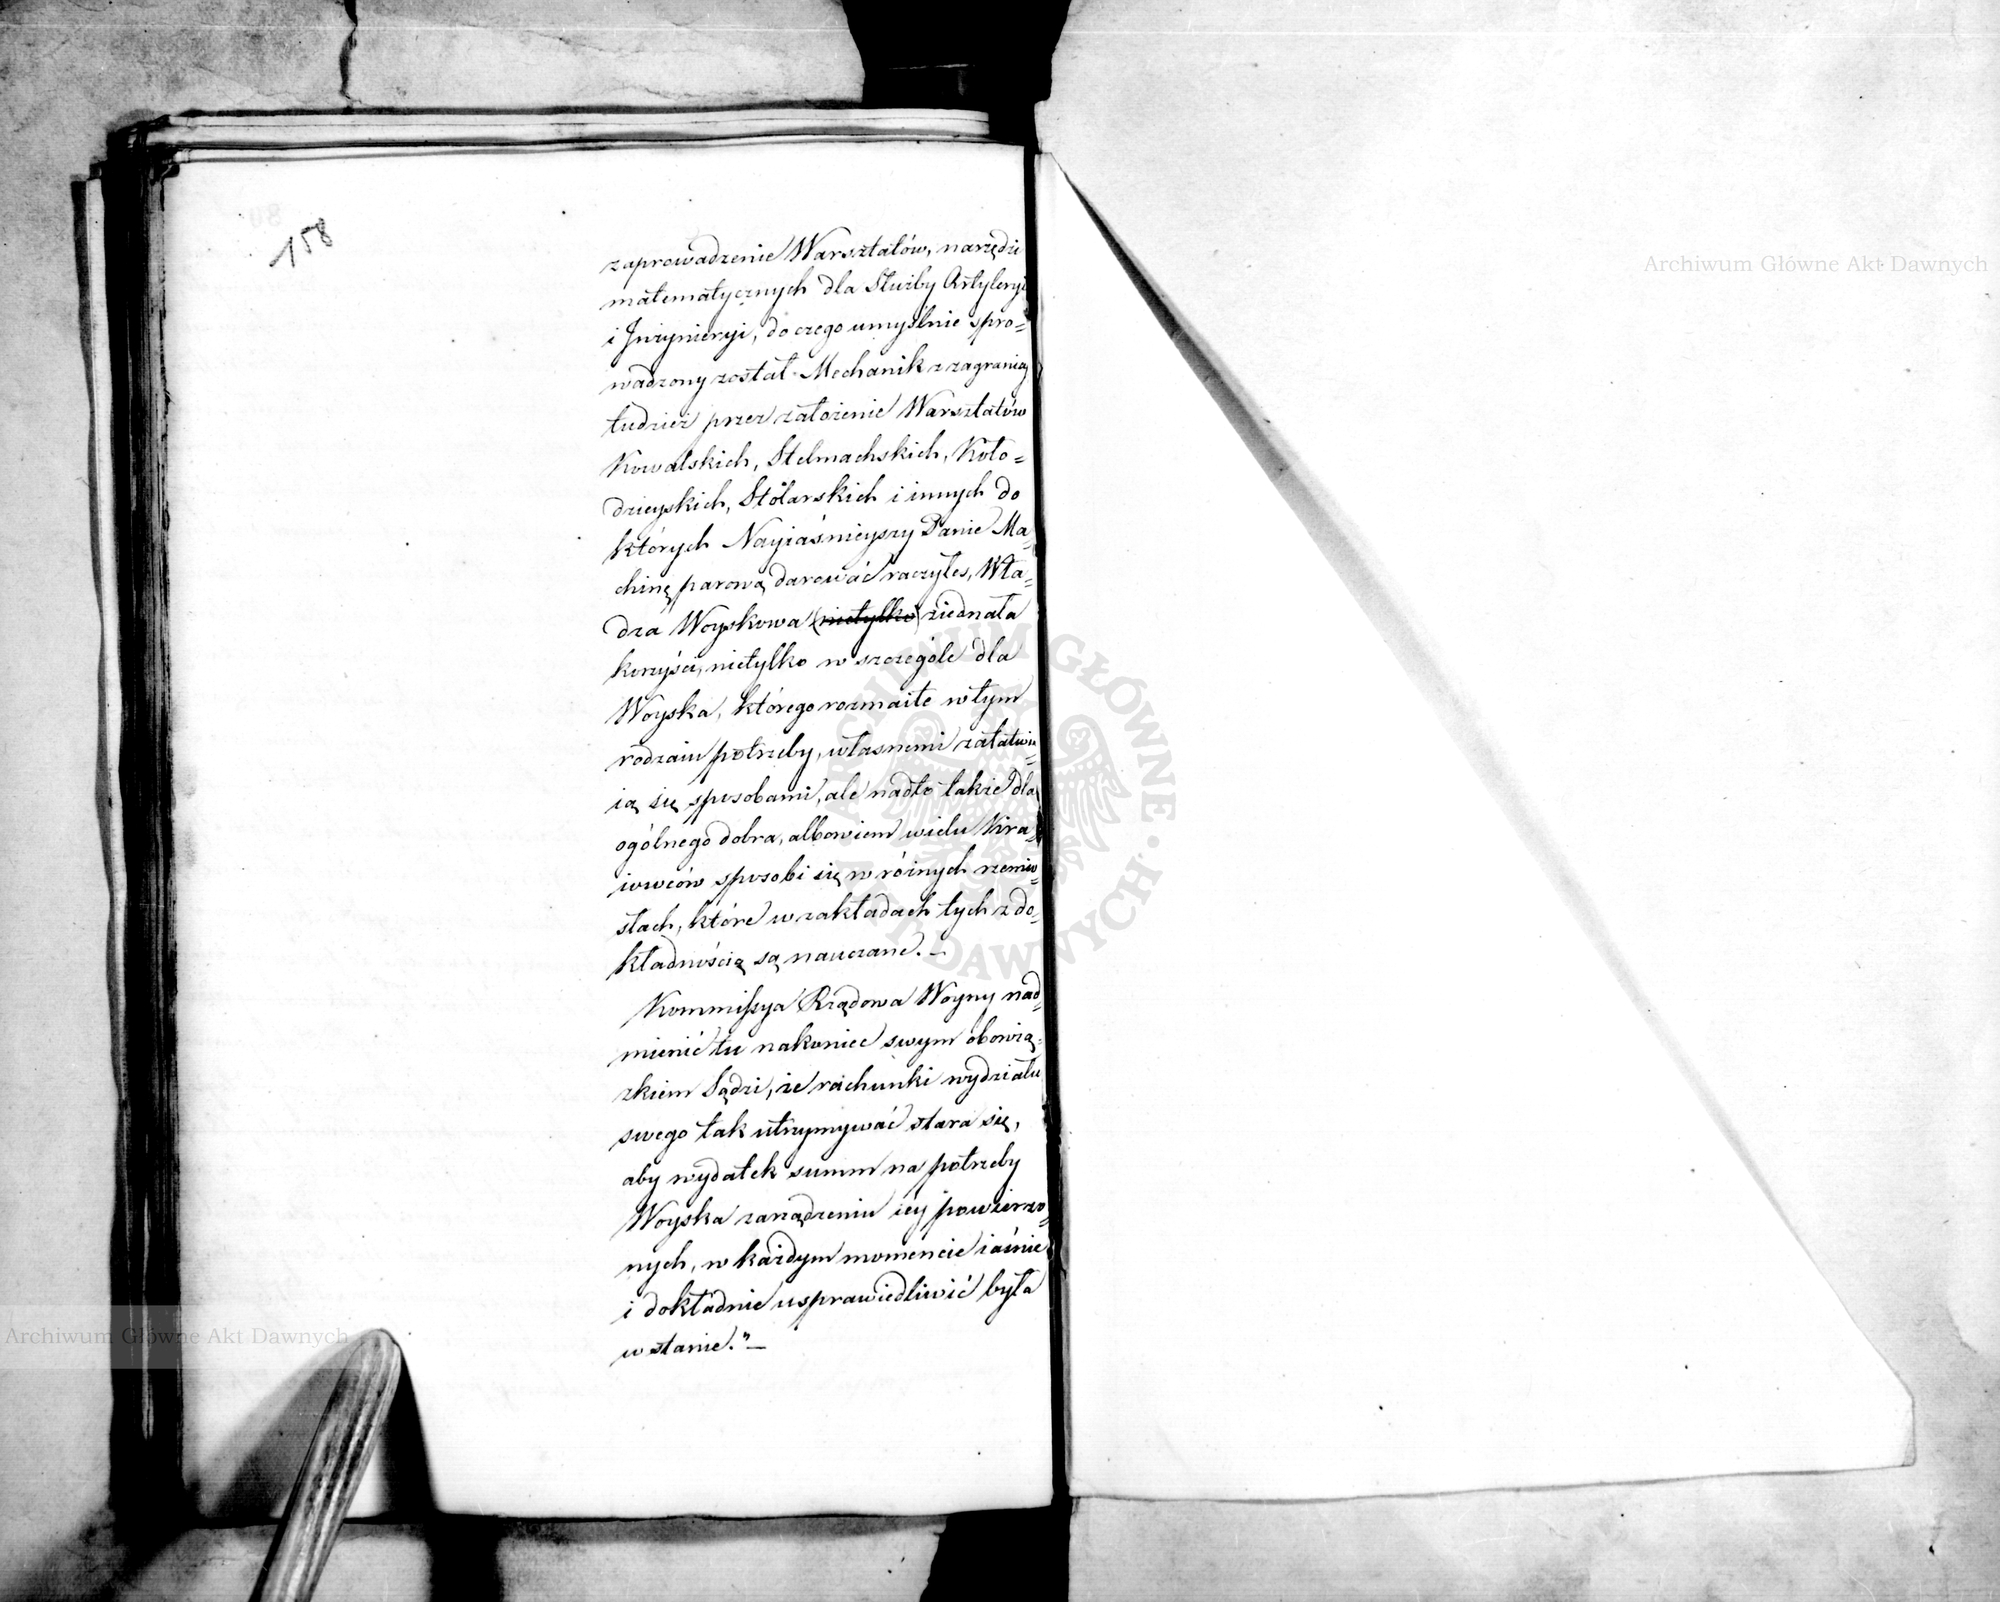 158
zaprowadzenie Warsztatów, narzędzi
matematycznych dla Służby Artyleryi
i Inżynieryi, do czego umyślnie spro=
wadzony został Mechanik z zagranicy
tudzież przez założenie Warsztatów
Kowalskich, Stelmachskich, Koło=
dzieyskich, Stolarskich i innych do
których Nayiaśnieyszy Panie Ma=
chinę parową darować raczyłeś, Wła=
dza Woyskowa (nietylko) ziednała
korzyści, nietylko w szczególe dla
Woyska, którego rozmaite w tym
rodzaiu potrzeby, własnemi załatwia=
ią się sposobami, ale nadto także dla
ogólnego dobra, albowiem wielu Kra=
iowców sposobi się w różnych rzemio=
słach, które w zakładach tych z do=
kładnością są nauczane. —
Kommissya Rządowa Woyny nad=
mienić tu nakoniec swym obowią=
zkiem Sądzi, że rachunki wydziału
swego tak utrzymywać stara się,
aby wydatek summ na potrzeby
Woyska zarządzeniu iey powierzo=
nych, w każdym momencie iaśnie
i dokładnie usprawiedliwić była
w stanie." —
Archiwum Główne Akt Dawnych
Archiwum Główne Akt Dawnych
ARCHIWUM GŁÓWNE AKT DAWNYCH